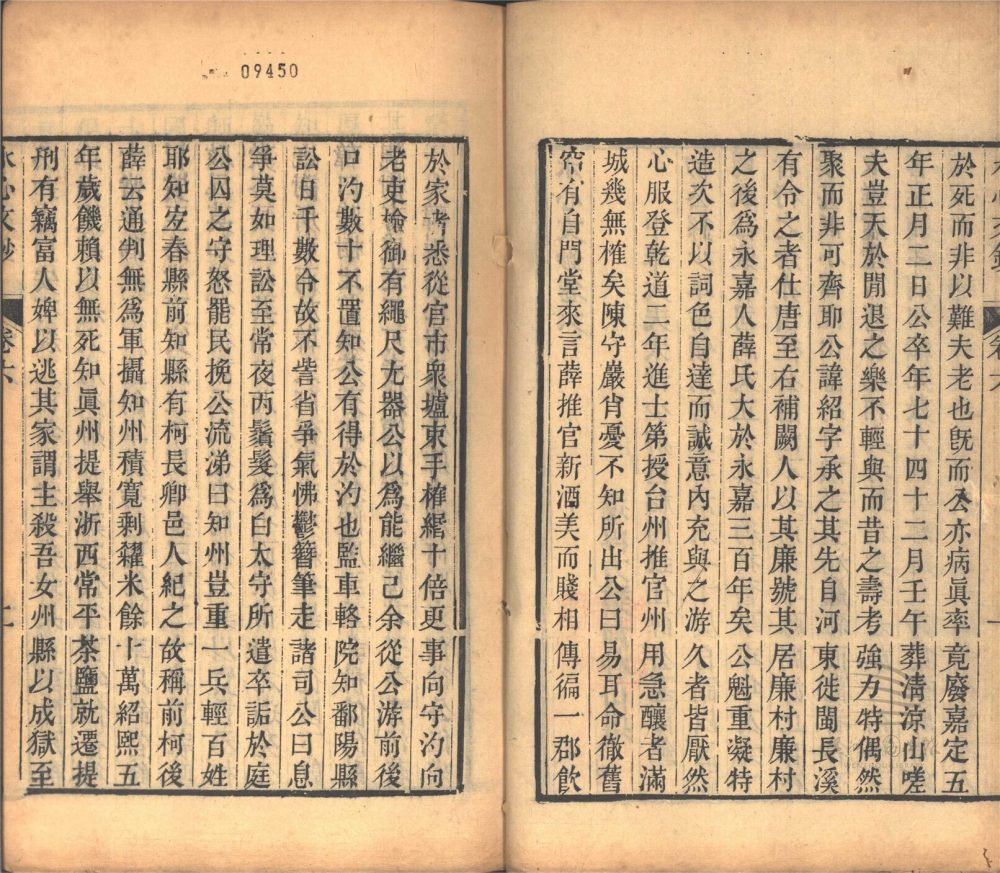 於死而非以難夫老也旣而公亦病眞率竟廢嘉定五
年正月二日公卒年七十四十二月壬午葬清涼山嗟
夫豈天於閒退之樂不輕與而昔之壽考強力特偶然
聚而非可齊耶公諱紹字承之其先自河東徙閩長溪
有令之者仕唐至右補闕人以其廉號其居廉村廉村
之後爲永嘉人薛氏大於永嘉三百年矣公魁重凝特
造次不以詞色自達而誠意內充與之游久者皆厭然
心服登乾道二年進士第授台州推官州用急釀者滿
城幾無榷矣陳守巖肖憂不知所出公曰易耳命徹舊
帘有自門堂來言薛推官新酒美而賤相傳徧一郡飲
09450
於家者悉從官市衆壚束手榷緡十倍更事向守汋向
老吏檢御有繩尺尤器公以爲能繼己余從公游前後
口汋數十不置知公有得於汋也監車輅院知鄱陽縣
訟日千數令故不訾省爭氣怫鬱簪筆走諸司公曰息
爭莫如理訟至常夜丙鬚髮爲白太守所遣卒詬於庭
公囚之守怒罷民挽公流涕曰知州豈重一兵輕百姓
耶知宜春縣前知縣有柯長卿邑人紀之故稱前柯後
薛云通判無爲軍攝知州積寬剩糴米餘十萬紹熙五
年歲饑賴以無死知眞州提舉浙西常平茶鹽就遷提
刑有竊富人婢以逃其家謂主殺吾女州縣以成獄至
水心文鈔 卷六